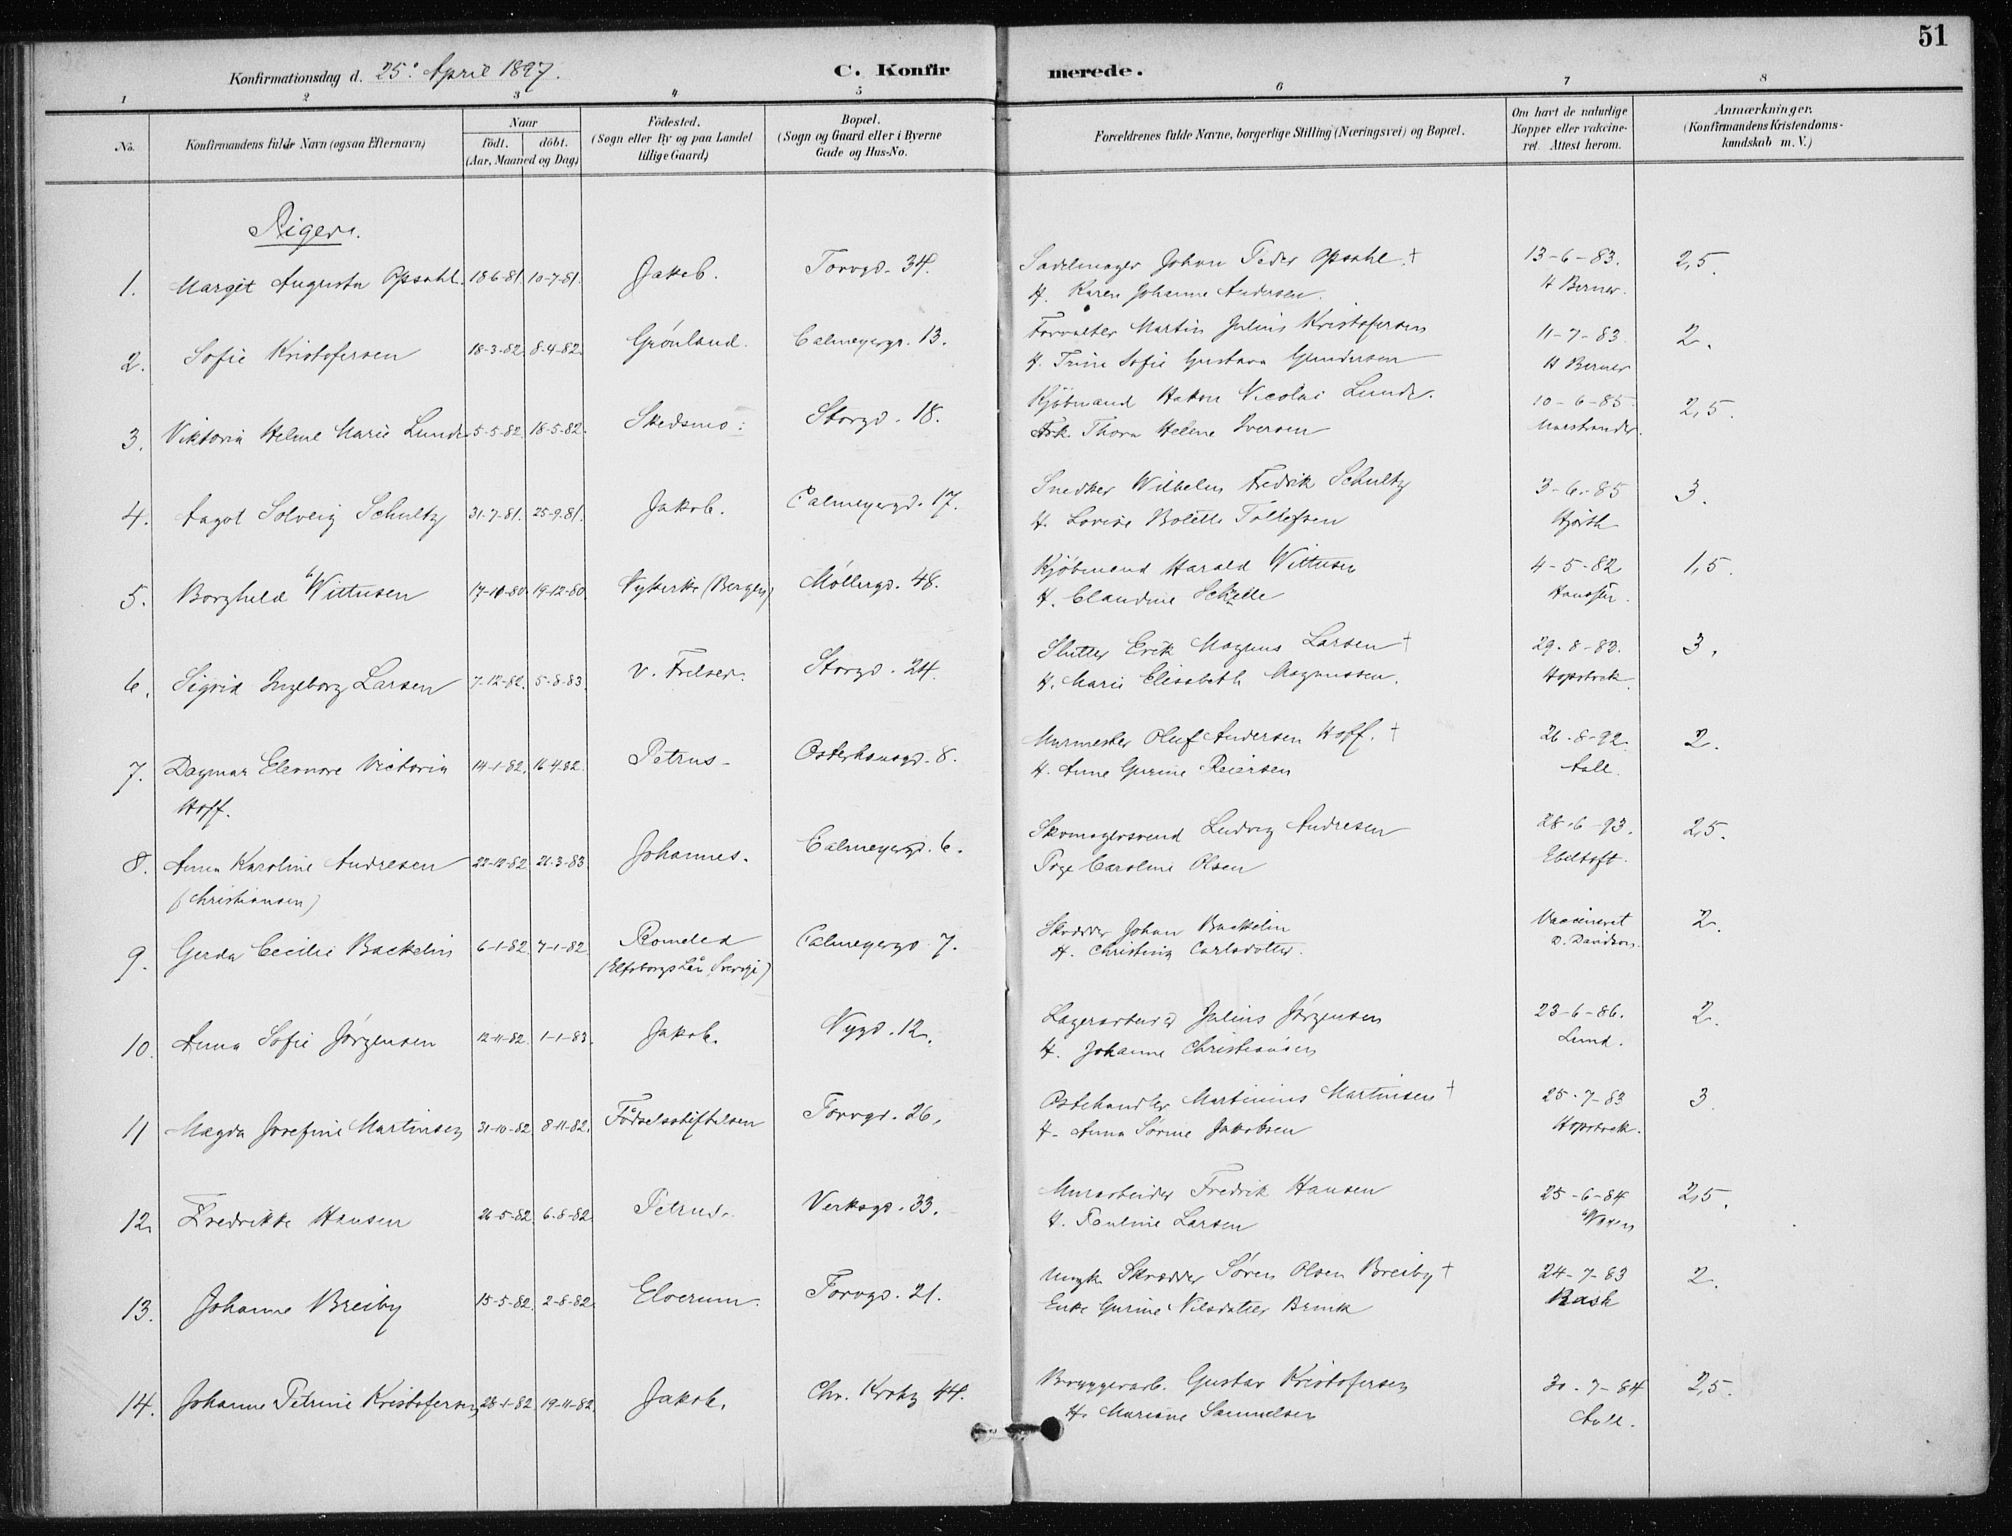 51
Konfirmationsdag d. 25. April 1897. C. Konfirmerede.
1 2 3 4 5 6 7 8
No. Konfirmandens fulde Navn (ogsaa Efternavn) Naar födt. döbt. (Aar, Maaned og Dag) Födested. (Sogn eller By og paa Landet tillige Gaard) Bopæl. (Sogn og Gaard eller i Byerne Gade og Hus-No. Forældrenes fulde Navne, borgerlige Stilling (Næringsvei) og Bopæl. Om havt de naturlige Kopper eller vakcineret. Attest herom. Anmærkninger. (Konfirmandens Kristendomskundskab m. V.)
Piger.
1. Margit Augusta Opsahl. 18-6-81. 10-7-81. Jakob. Torvgd. 34. Sadelmager Johan Peder Opsahl. † 13-6-83. 2,5.
H. Karen Johanne Andersen. H Berner.
2. Sofie Kristofersen 18-3-82. 8-4-82. Grønland. Calmeyergd. 13. Forvalter Martin Julius Kristofersen 11-7-83. 2.
H. Trine Sofie Gustava Gundersen H Berner
3. Viktoria Helene Marie Lunde 5-5-82. 18-5-82. Skedsmo. Storgd. 18. Kjöbmand Hakon Nicolai Lunde. 10-6-85. 2,5.
Thora Helene Iversen
4. Aagot Solveig Schultz 31-7-81. 25-9-81. Jakob. Calmeyergd. 17. Snedker Wilhelm Fredrik Schultz 3-6-85 3.
H. Lovise Bolette Tollefsen Hjorth
5. Borghild Wittusen 17-10-80. 19-12-80. Nykirke (Bergen) Møllergd. 48. Kjöbmand Harald Wittusen 4-5-82 1,5.
H. Claudine
6. Sigrid Ingeborg Larsen 7-12-82. 5-8-83. V. Frelser. Storgd. 24. Slutter Erik Magnus Larsen † 29-8-83. 3.
H. Marie Elisabeth Magnussen. Hopstock
7. Dagmar Eleonore Victoria 14-1-82. 16-4-82. Petrus. Osterhausgd. 8. Murmester Oluf Andersen Hoff. † 26-8-92. 2.
Hoff. H. Anne Gurine Reiersen Aall.
8. Anna Karoline Andresen 22-12-82. 26-3-83. Johannes. Calmeyergd. 6. Skomagersvend Ludvig Andresen 28-6-93. 2,5.
(Christiansen) Pige Caroline Olsen Ebeltoft.
9. Gerda Cecilie Backelin 6-1-82. 7-1-82. Romeled Calmeyergd. 7. Skrædder Johan Backelin Vaccineret 2.
(Elfsborgs Län Sverige) H. Christina Carlsdotter. D. Davidson.
10. Anna Sofie Jørgensen 12-11-82. 1-1-83. Jakob. Nygd. 12. Lagerarbeider Julius Jørgensen 23-6-86. 2.
H. Johanne Christiansen Lund.
11 Magda Josefine Martinsen 31-10-82 8-11-82. Fødselsstiftelsen Torvgd. 26. Ostehandler Martinius Martinsen † 25-7-83 3
H. Anna Sørine Jakobsen Hopstock.
12. Fredrikke Hansen 26-5-82. 6-8-82. Petrus. Verksgd. 33. Murarbeider Fredrik Hansen 25-6-84 2,5.
H. Pauline Larsen
13. Johanne Breiby 15-5-82. 2-8-82. Elverum. Torvgd. 21. Ungk. Skrædder Søren Olsen Breiby † 24-7-83 2.
Enke Gurine Nilsdatter Brink Rash
14. Johanne Petrine Kristofersen 28-1-82. 19-11-82. Jakob. Chr. Krohg 44. Bryggerarb. Gustav Kristofersen 30-7-84 2,5.
H. Mariane Samuelsen Aall.